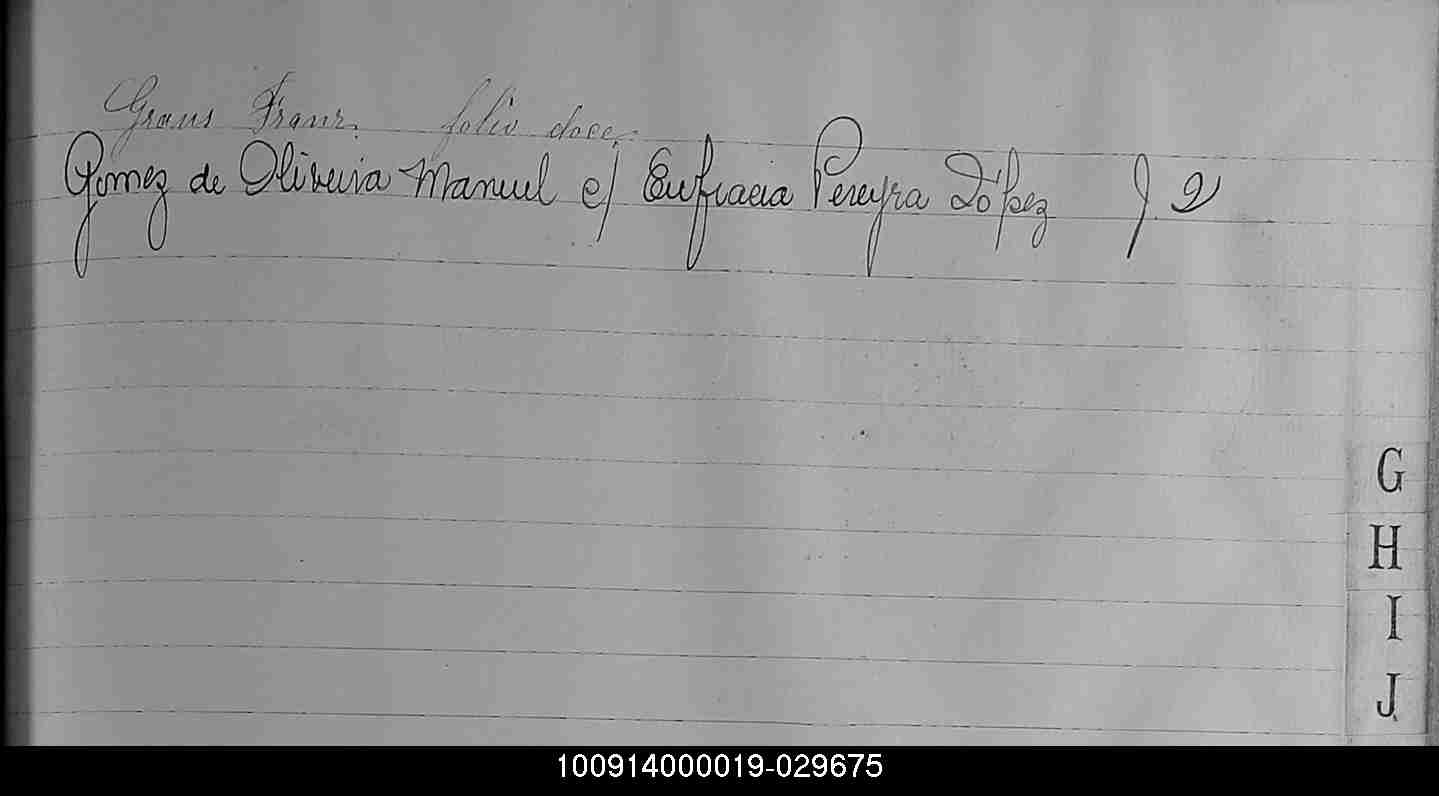 Graus Franz. folio doce.
Gomez de Oliveira Manuel c/ Eufracia Pereyra López f. 2
G
H
I
J
100914000019-029675